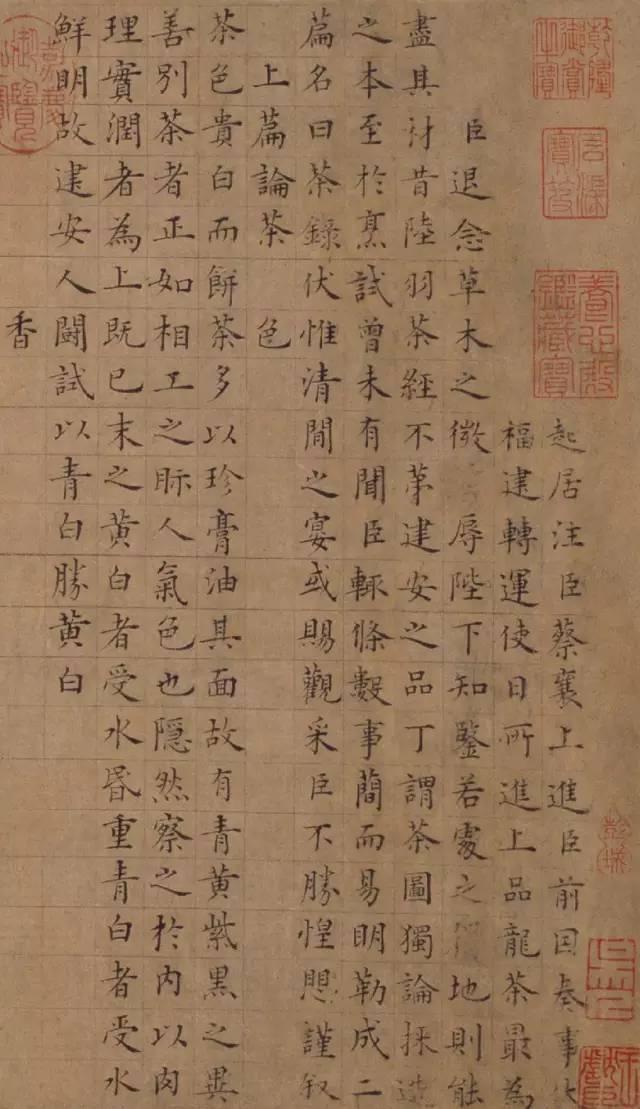 乾隆御賞之寶
石渠寶笈
養心殿鑑藏寶
起居注臣蔡襄上進臣前因奏事伏
福建轉運使日所進上品龍茶最為
臣退念草木之微辱陛下知鑒若處之地則能
盡其材昔陸羽茶經不第建安之品丁謂茶圖獨論採造
之本至於烹試曾未有聞臣輒條數事簡而易明勒成二
篇名曰茶錄伏惟清閒之宴或賜觀采臣不勝惶懼謹叙
上篇論茶 色
茶色貴白而餅茶多以珍膏油其面故有青黃紫黑之異
善別茶者正如相工之眎人氣色也隱然察之於內以肉
理實潤者為上既已末之黃白者受水昏重青白者受水
鮮明故建安人鬭試以青白勝黃白
香
嘉慶御覽之寶